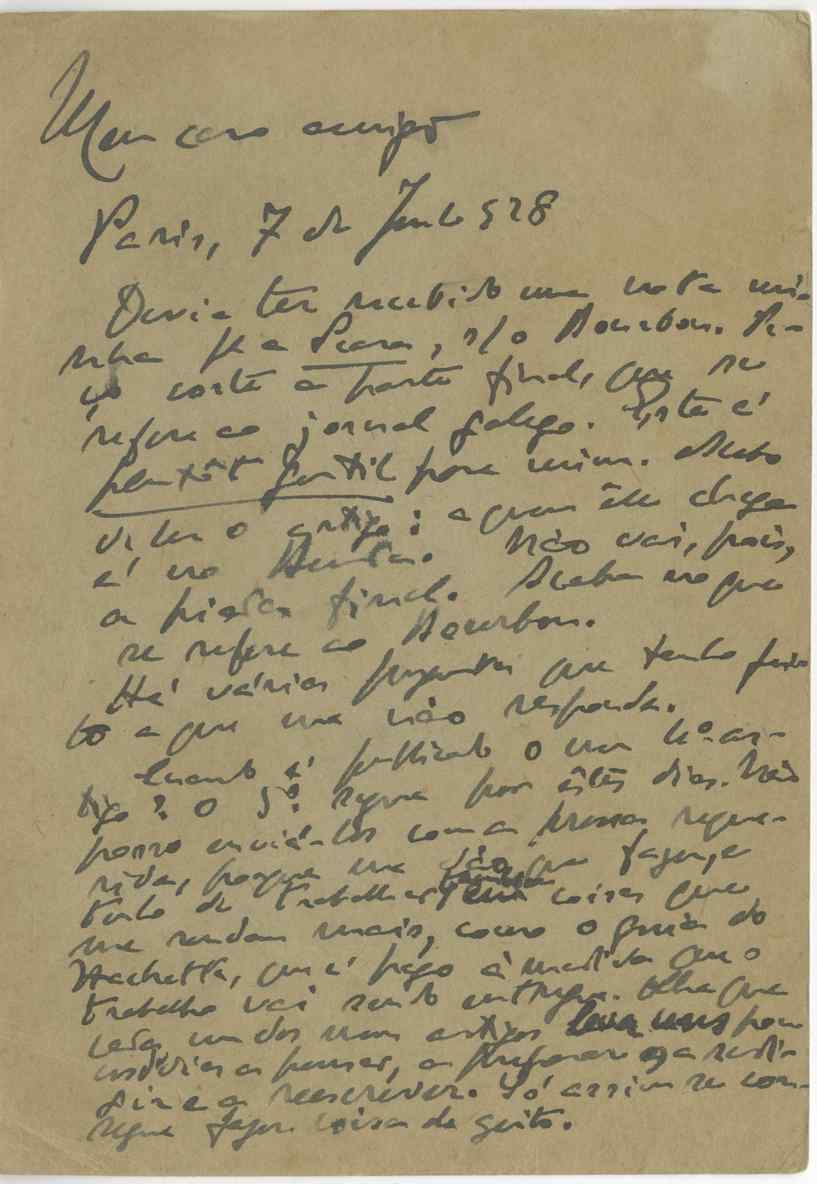 Meu caro amigo
Paris, 7 de Junho 928
Devia ter recebido uma nota mi-
nha p.a a Seara, s/ o Bourbon. Su-
corte a parte final, que se
refere ao jornal galego. Este é
plutôt gentil para mim. Acabo
de ler o artigo: a quem êle chega
é ao Não vai, pois,
a final. Acaba no que
se refere ao Bourbon.
Há várias perguntas que tenho fei-
to a que me não responda.
Quando é publicado o meu 4.º ar-
tigo? O 5.º segue por êstes dias. Não
posso enviá-los com a pressa reque-
rida, porque me dão que fazer, e
tenho de trabalhar em coisas que
me rendam mais, como o guia do
Hachette, que é pago à medida que o
trabalho vai sendo entregue. Olha que
cada um dos meus artigos leva uns poucos
dias a pensar, a preparar, a redi-
gir e a reescrever. Só assim se con-
segue fazer coisa de geito.